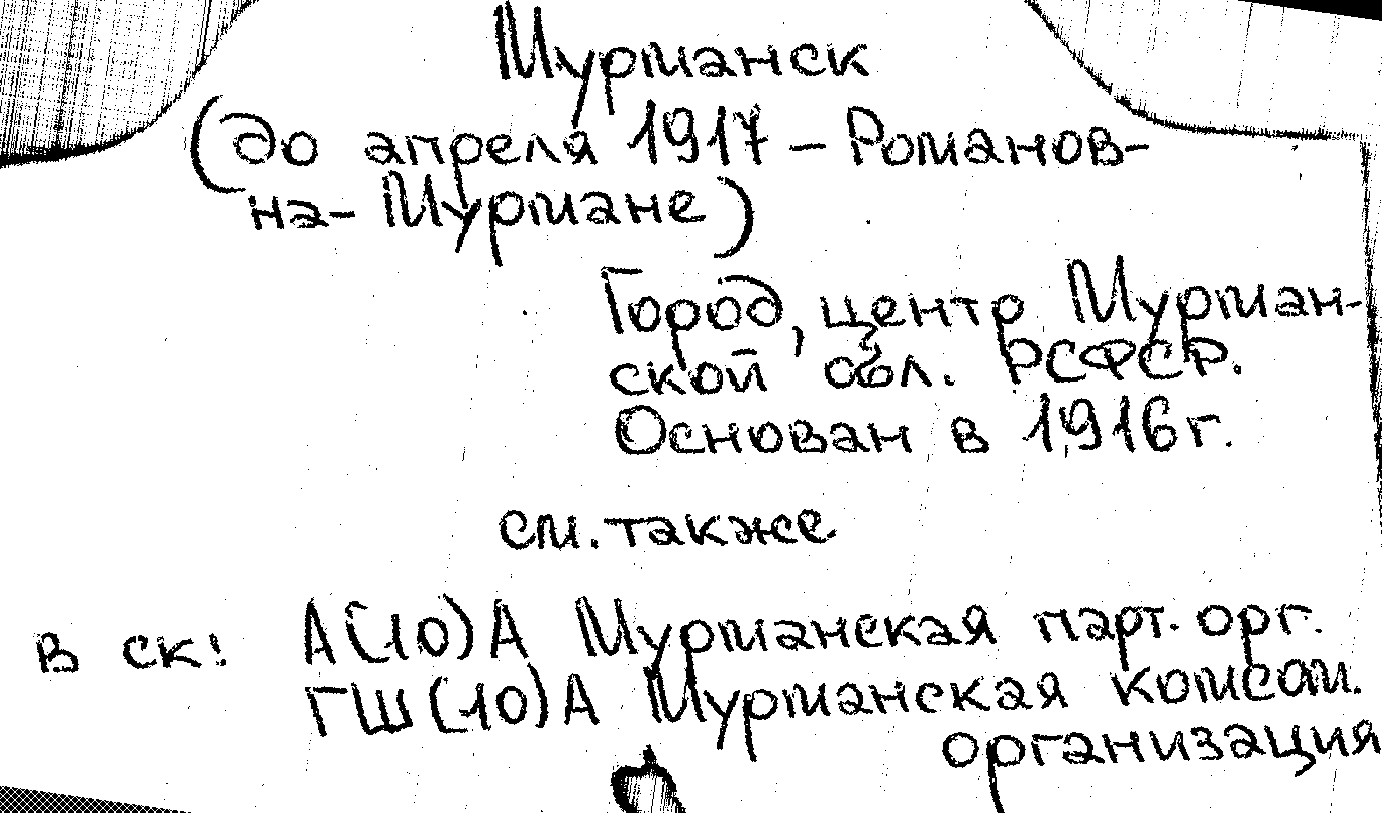 Мурманск
(до апреля 1917 – Романов-
на-Мурмане)
Город, центр Мурман-
ской обл. РСФСР.
Основан в 1916г.
см. также
в ск! А(10)А Мурманская парт. орг.
ГШ(10)А Мурманская комсом.
организация